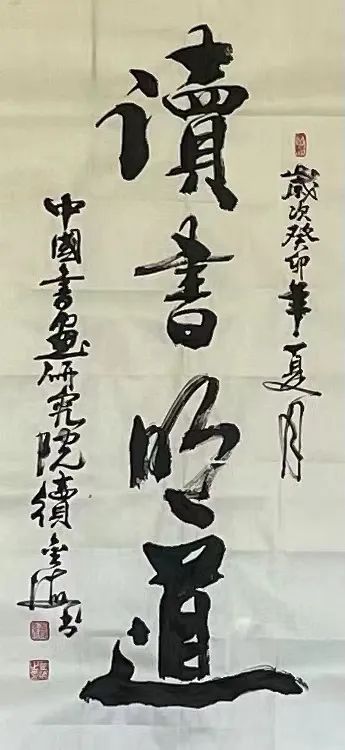 歲次癸卯年夏月
讀書明道
中國書畫研究院